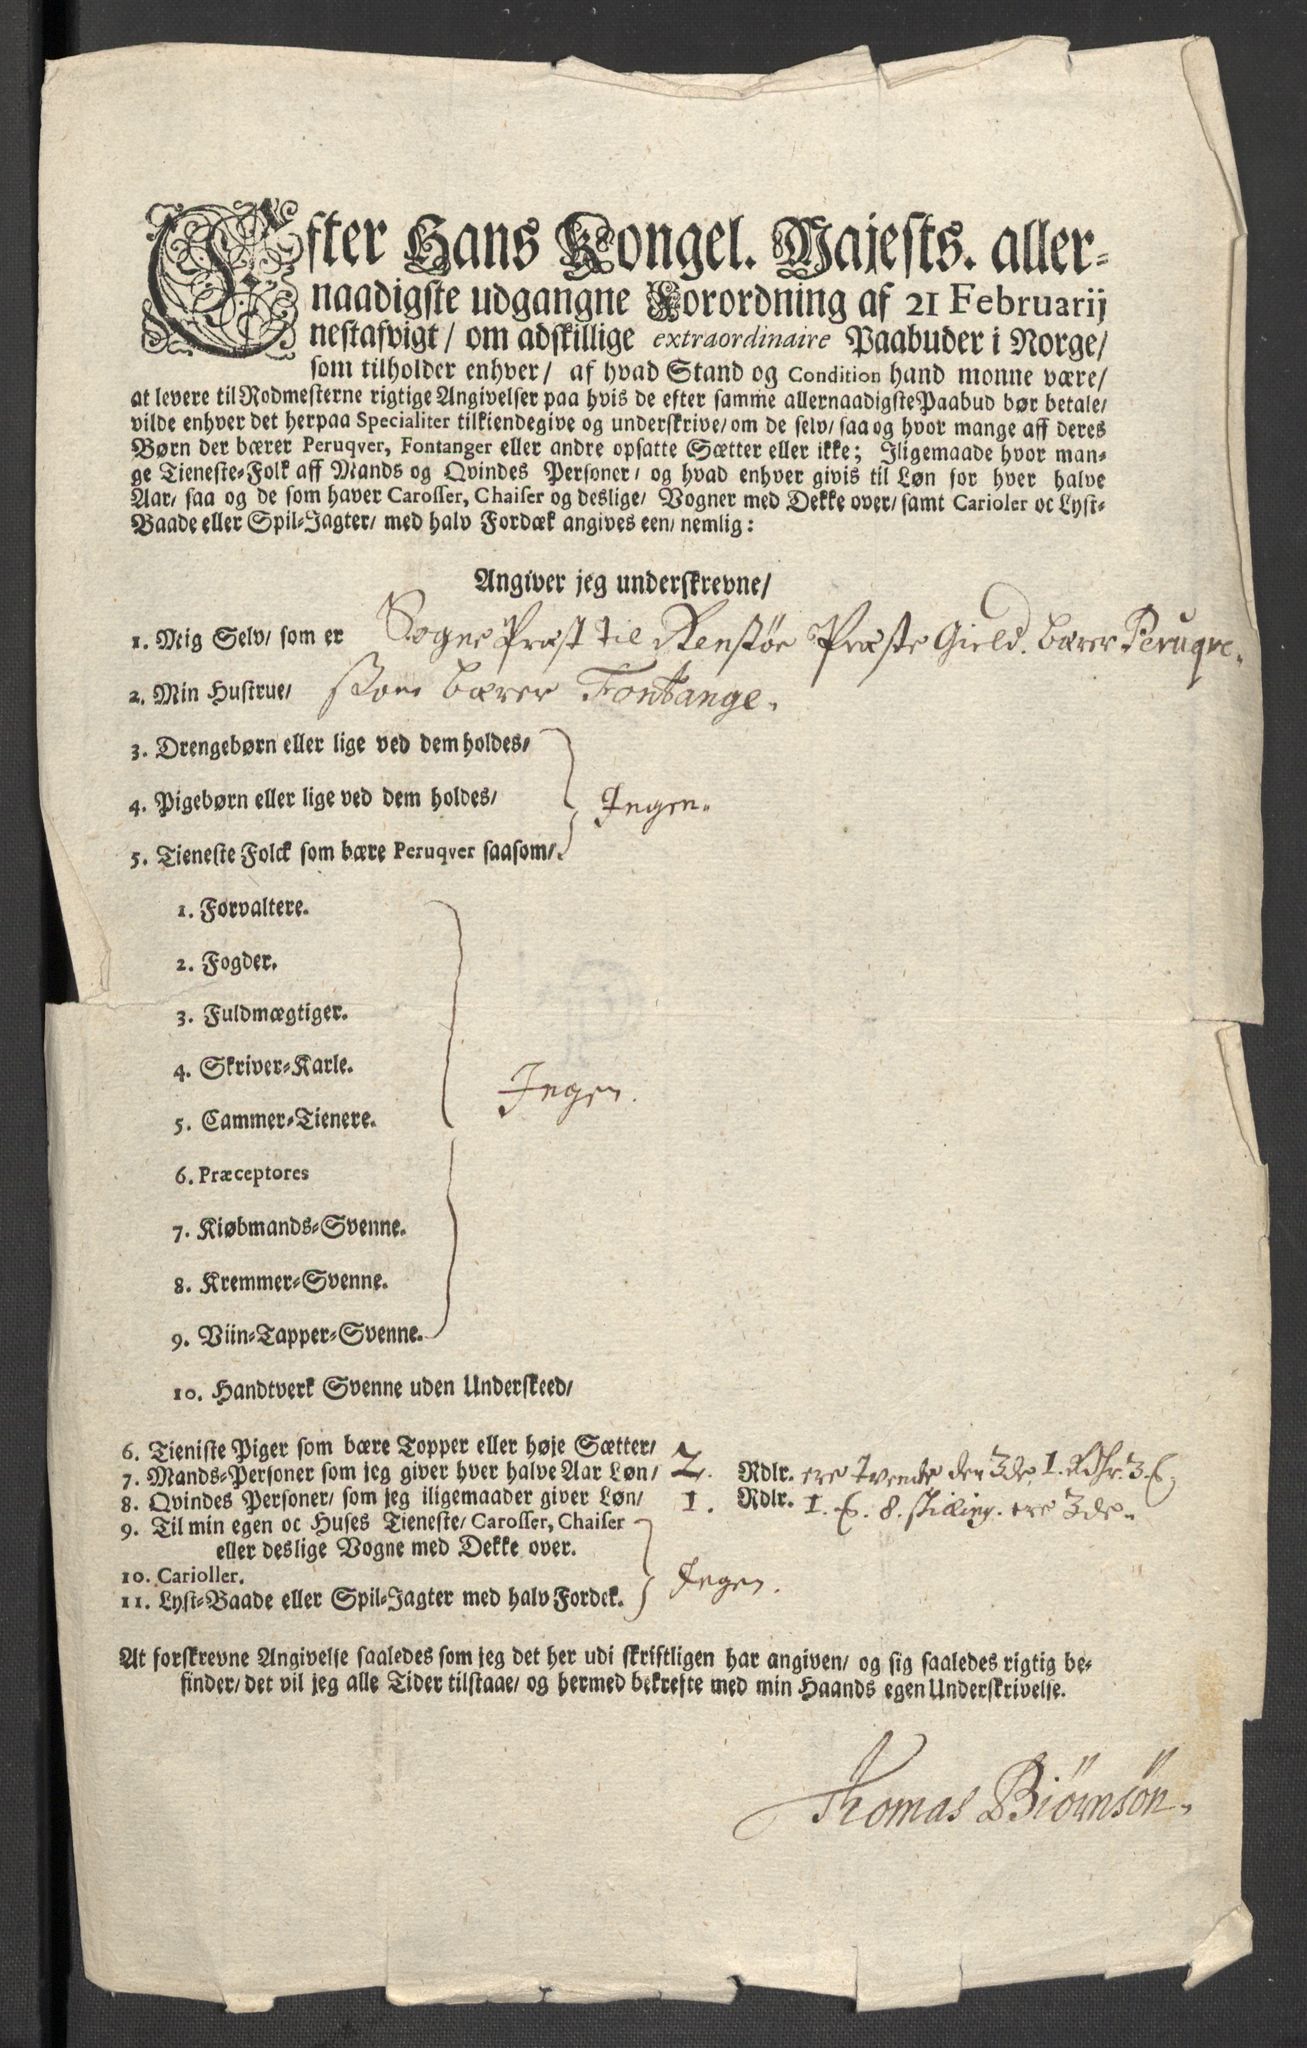 Efter Hans Kongel. Majests. aller-
naadigste udgangne Forordning af 21 Februarij
nestafvigt/ om adskillige extraordinaire Paabuder i Norge/
som tilholder enhver/ af hvad Stand og Condition hand monne være/
at levere til Rodmesterne rigtige Angivelser paa hvis de efter samme allernaadigste Paabud bør betale/
vilde enhver det herpaa Specialiter tilkiendegive og underskrive/ om de selv/ saa og hvor mange aff deres
Børn der bærer Peruqver, Fontanger eller andre opsatte Sætter eller ikke; Iligemaade hvor man-
ge Tieneste-Folk aff Mands og Qvindes Personer/ og hvad enhver givis til Løn for hver halve
Aar/ saa og de som haver Carosser, Chaiser og deslige/ Vogner med Dekke over/ samt Carioler oc Lyst-
Baade eller Spil-Jagter/ med halv Fordæk angives een/ nemlig:
Angiver jeg underskrevne/
1. Mig Selv/ som er Sogne Præst til Præste Gield. bærer Peruqve.
2. Min Hustrue/ som bærer Fontange.
3. Drengebørn eller lige ved dem holdes/
4. Pigebørn eller lige ved dem holdes/ Ingen.
5. Tieneste Folck som bære Peruqver saasom/.
1. Forvaltere.
2. Fogder.
3. Fuldmægtiger.
4. Skriver-Karle.
Ingen.
5. Cammer-Tienere.
6. Præceptores
7. Kiøbmands-Svenne.
8. Kremmer-Svenne.
9. Viin-Tapper-Svenne.
10. Handtverk Svenne uden Underskeed/
6. Tieniste Piger som bære Topper eller høje Sætter/
7. Mands-Personer som jeg giver hver halve Aar Løn/ 2. Rdlr. ere tvende den 3de 1. Rdlr. 3.
8. Qvindes Personer/ som jeg iligemaader giver Løn/ 1. Rdlr. 1. 8. skilling. ere 3de.
9. Til min egen oc Huses Tieneste/ Carosser, Chaiser
eller deslige Vogne med Dekke over.
10. Carioller. Ingen.
11. Lyst-Baade eller Spil-Jagter med halv Fordek.
At forskrevne Angivelse saaledes som jeg det her udi skriftligen har angiven/ og sig saaledes rigtig be-
finder/ det vil jeg alle Tider tilstaae/ og hermed bekrefte med min Haands egen Underskrivelse.
Thomas Biörnsön.